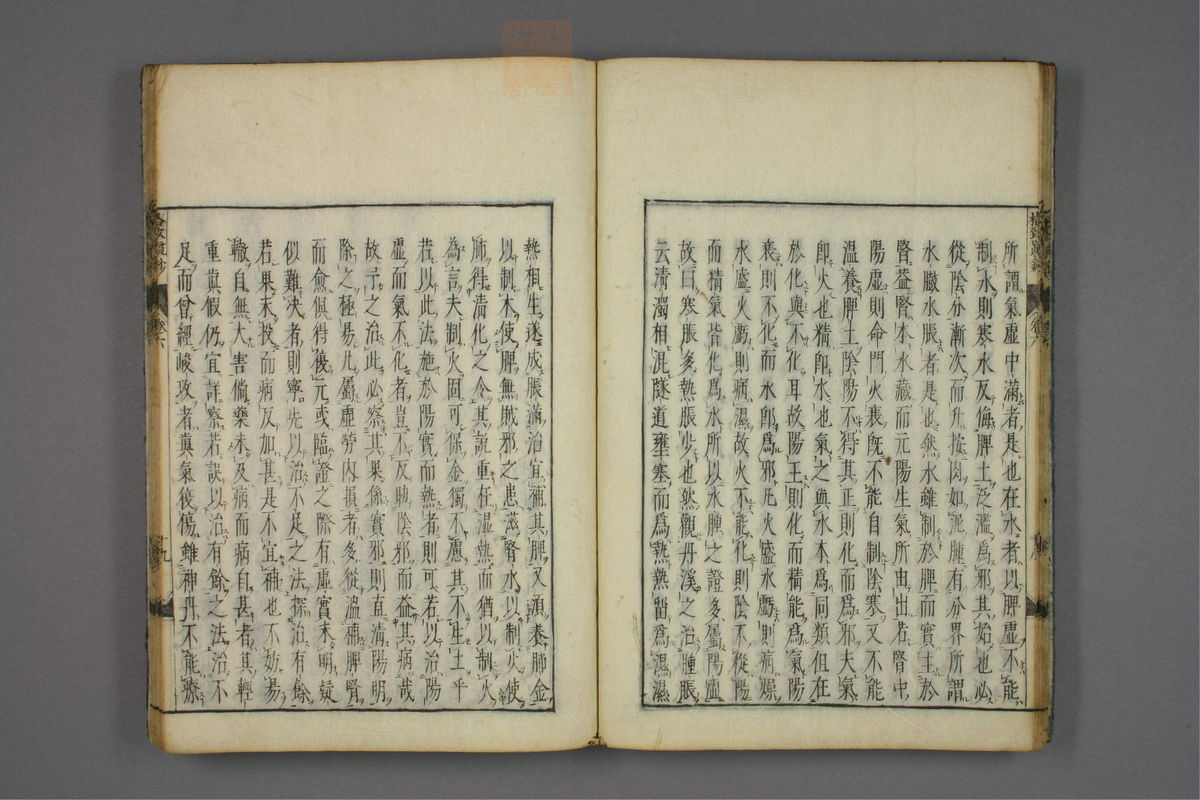 所謂氣虛中滿者是也在水者以脾虛不能
制水則寒水反侮脾土泛濫爲邪其始也必
從陰分漸次而升按肉如泥腫有分界所謂
水臌水脹者是也然水雖制於脾而實主於
腎蓋腎本水藏而元陽生氣所由出若腎中
陽虛則命門火衰既不能自制陰寒又不能
溫養脾土陰陽不得其正則化而爲邪夫氣
即火也精即水也氣之與水本爲同類但在
於化與不化耳故陽王則化而精能爲氣陽
衰則不化而水即爲邪凡火盛水虧則病燥
水盛火虧則病濕故火不能化則陰不從陽
而精氣皆化爲水所以水腫之證多屬陽虛
故曰寒脹多熱脹少也然觀丹溪之治腫脹
云清濁相混隧道壅塞而爲熱熱留爲濕濕
熱相生遂成脹滿治宜補其脾又須養肺金
以制木使脾無賊邪之患滋腎水以制火使
肺得清化之令其說重在濕熱而猶以制火
為言夫制火固可保金獨不慮其不生土乎
若以此法施於陽實而熱者則可若以治陽
虛而氣不化者豈不反助陰邪而益其病哉
故予之治此必察其果係實邪則直清陽明
除之極易凡屬虛勞內損者多從溫補脾腎
而愈俱得復元或臨證之際有虛實未明疑
似難決者則寧先以治不足之法探治有餘
若果未投而病反加甚是不宜補也不妨易
轍自無大害倘藥未及病而病自甚者其輕
重眞假仍宜詳察若誤以治有餘之法治不
足而曾經峻攻者眞氣復傷雖神丹不能療
卷六
九